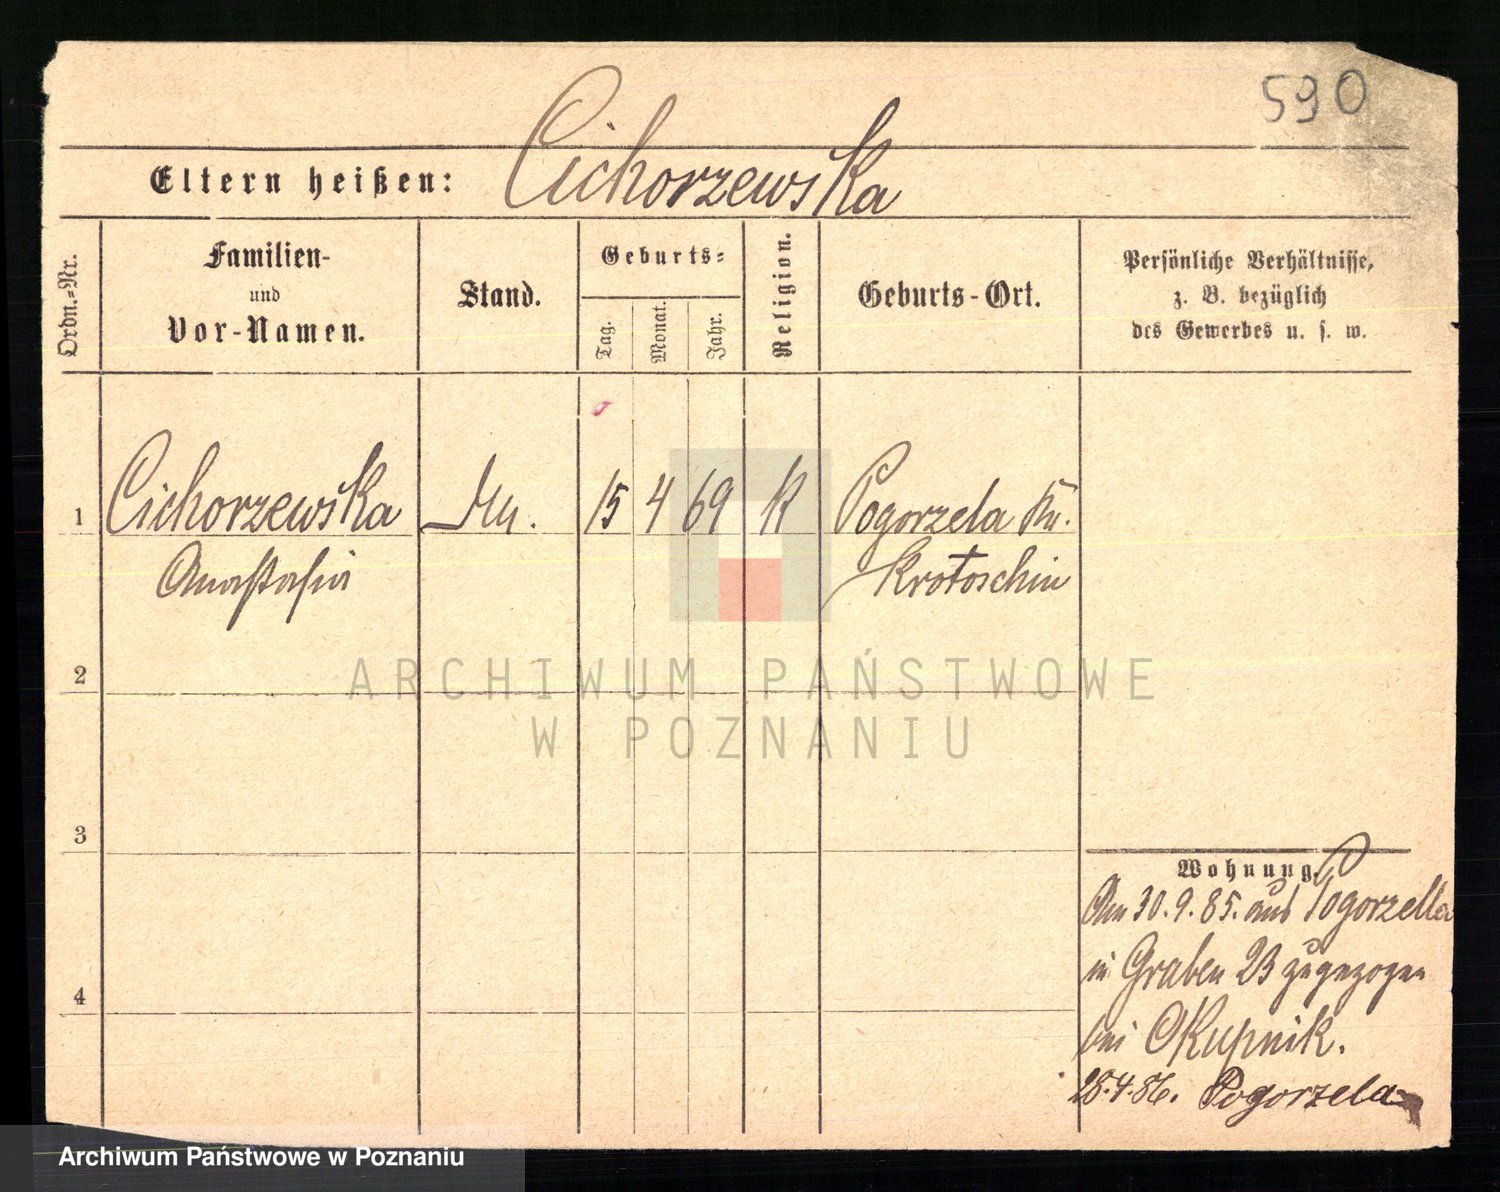 590
Cichorzewska
Eltern heißen:
Ordn.-Nr.
Familien-
und
Vor-Namen.
Stand.
Geburts-
Tag.
Monat.
Jahr.
Religion.
Geburts-Ort.
Persönliche Verhältnisse,
z. B. bezüglich
des Gewerbes u. s. w.
1 Cichorzewska 15 4 69 K Pogorzela Kr.
Anastasia Krotoschin
2
ARCHIWUM PAŃSTWOWE
W POZNANIU
3
Wohnung.
Am 30.9.85. aus Pogorzella
in Graben 23 zugezogen
bei Skupnik.
4
28.4.86. Pogorzela
Archiwum Państwowe w Poznaniu